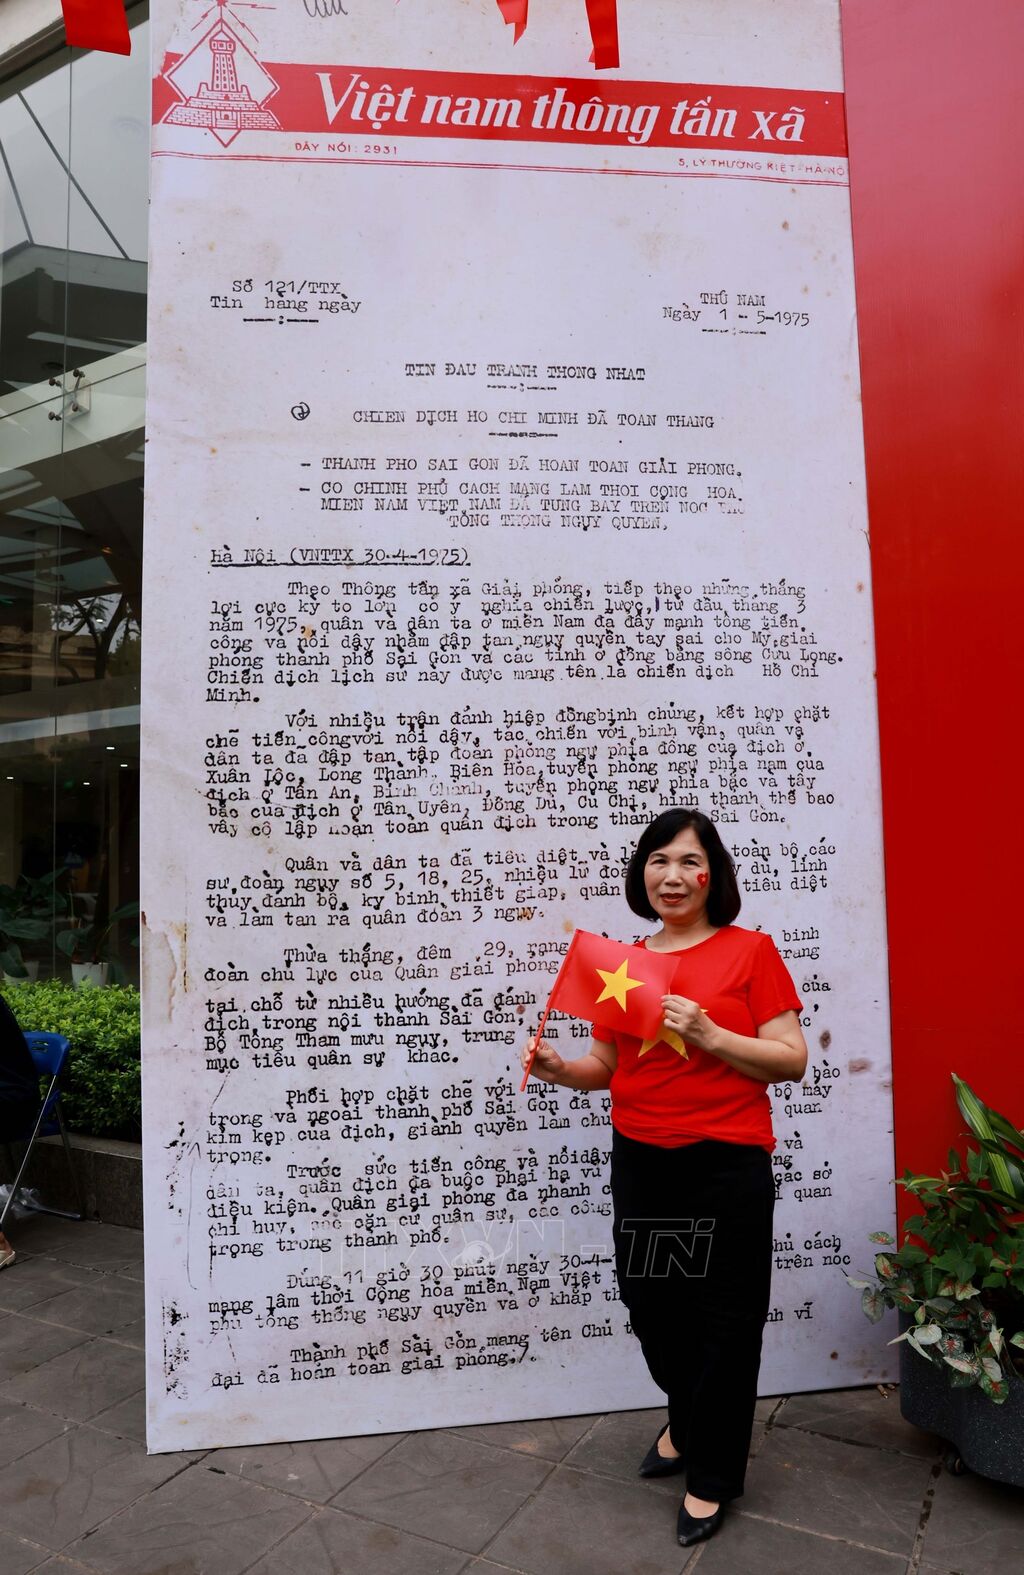 Việt nam thông tấn xã
DÂY NÓI: 2931
5, LÝ THƯỜNG KIỆT-HÀ-NỘ
Số 121/TTX
Tin hàng ngày
THỨ NAM
Ngày 1 - 5-1975
TIN ĐAU TRANH THONG NHAT
CHIEN DỊCH HO CHI MINH ĐÃ TOAN THANG
- THANH PHO SAI GON ĐÃ HOAN TOAN GIẢI PHONG.
- CO CHINH PHỦ CACH MẠNG LAM THOI CỌNG HOA
MIEN NAM VIỆT NAM ĐÃ TUNG BAY TREN NOC
TỔNG THỌNG NGỤY QUYEN,
Hà Nội (VNTTX 30-4-1975)
Theo Thông tấn xã Giải phóng, tiếp theo những thắng
lợi cực kỳ to lớn có ý nghĩa chiến lược, từ đầu tháng 3
năm 1975, quân và dân ta ở miền Nam đã đẩy mạnh tổng tiến
công và nổi dậy nhằm đập tan ngụy quyền tay sai cho Mỹ, giải
phóng thành phố Sài Gòn và các tỉnh ở đồng bằng sông Cửu Long.
Chiến dịch lịch sử này được mang tên là chiến dịch Hồ Chí
Minh.
Với nhiều trận đánh hiệp đồngbinh chủng, kết hợp chặt
chẽ tiến côngvới nổi dậy, tác chiến với binh vận, quân và
dân ta đã đập tan tập đoàn phòng ngự phía đông của địch ở
Xuân Lộc, Long Thành, Biên Hòa, tuyến phòng ngự phía nam của
địch ở Tân An, Bình Chánh, tuyến phòng ngự phía bắc và tây
bắc của địch ở Tân Uyên, Đồng Dù, Củ Chi, hình thành thế bao
vây cô lập hoàn toàn quân địch trong thành Sài Gòn.
Quân và dân ta đã tiêu diệt và là toàn bộ các
sư đoàn ngụy số 5, 18, 25, nhiều lữ đoà dù, lính
thủy đánh bộ, kỵ binh thiết giáp, quân tiêu diệt
và làm tan rã quân đoàn 3 ngụy.
Thừa thắng, đêm 29, rạng binh
đoàn chủ lực của Quân giải phóng
tại chỗ từ nhiều hướng đã đánh của
địch trong nội thành Sài Gòn,
Bộ Tổng Tham mưu ngụy, trung tâm
mục tiêu quân sự khác.
Phối hợp chặt chẽ với mũi bào
trong và ngoài thành phố Sài Gòn đã bộ máy
kìm kẹp của địch, giành quyền làm chủ quan
trọng.
Trước sức tiến công và nổidậy và
dân ta, quân địch đã buộc phải hạ vũ các sở
điều kiện. Quân giải phóng đã nhanh quan
chỉ huy, các căn cứ quân sự, các công
trọng trong thành phố.
Đúng 11 giờ 30 phút ngày 30-4- phủ cách
mạng lâm thời Cộng hòa miền Nam Việt trên nóc
phủ tổng thống ngụy quyền và ở khắp
Thành phố Sài Gòn mang tên Chủ vĩ
đại đã hoàn toàn giải phóng./.